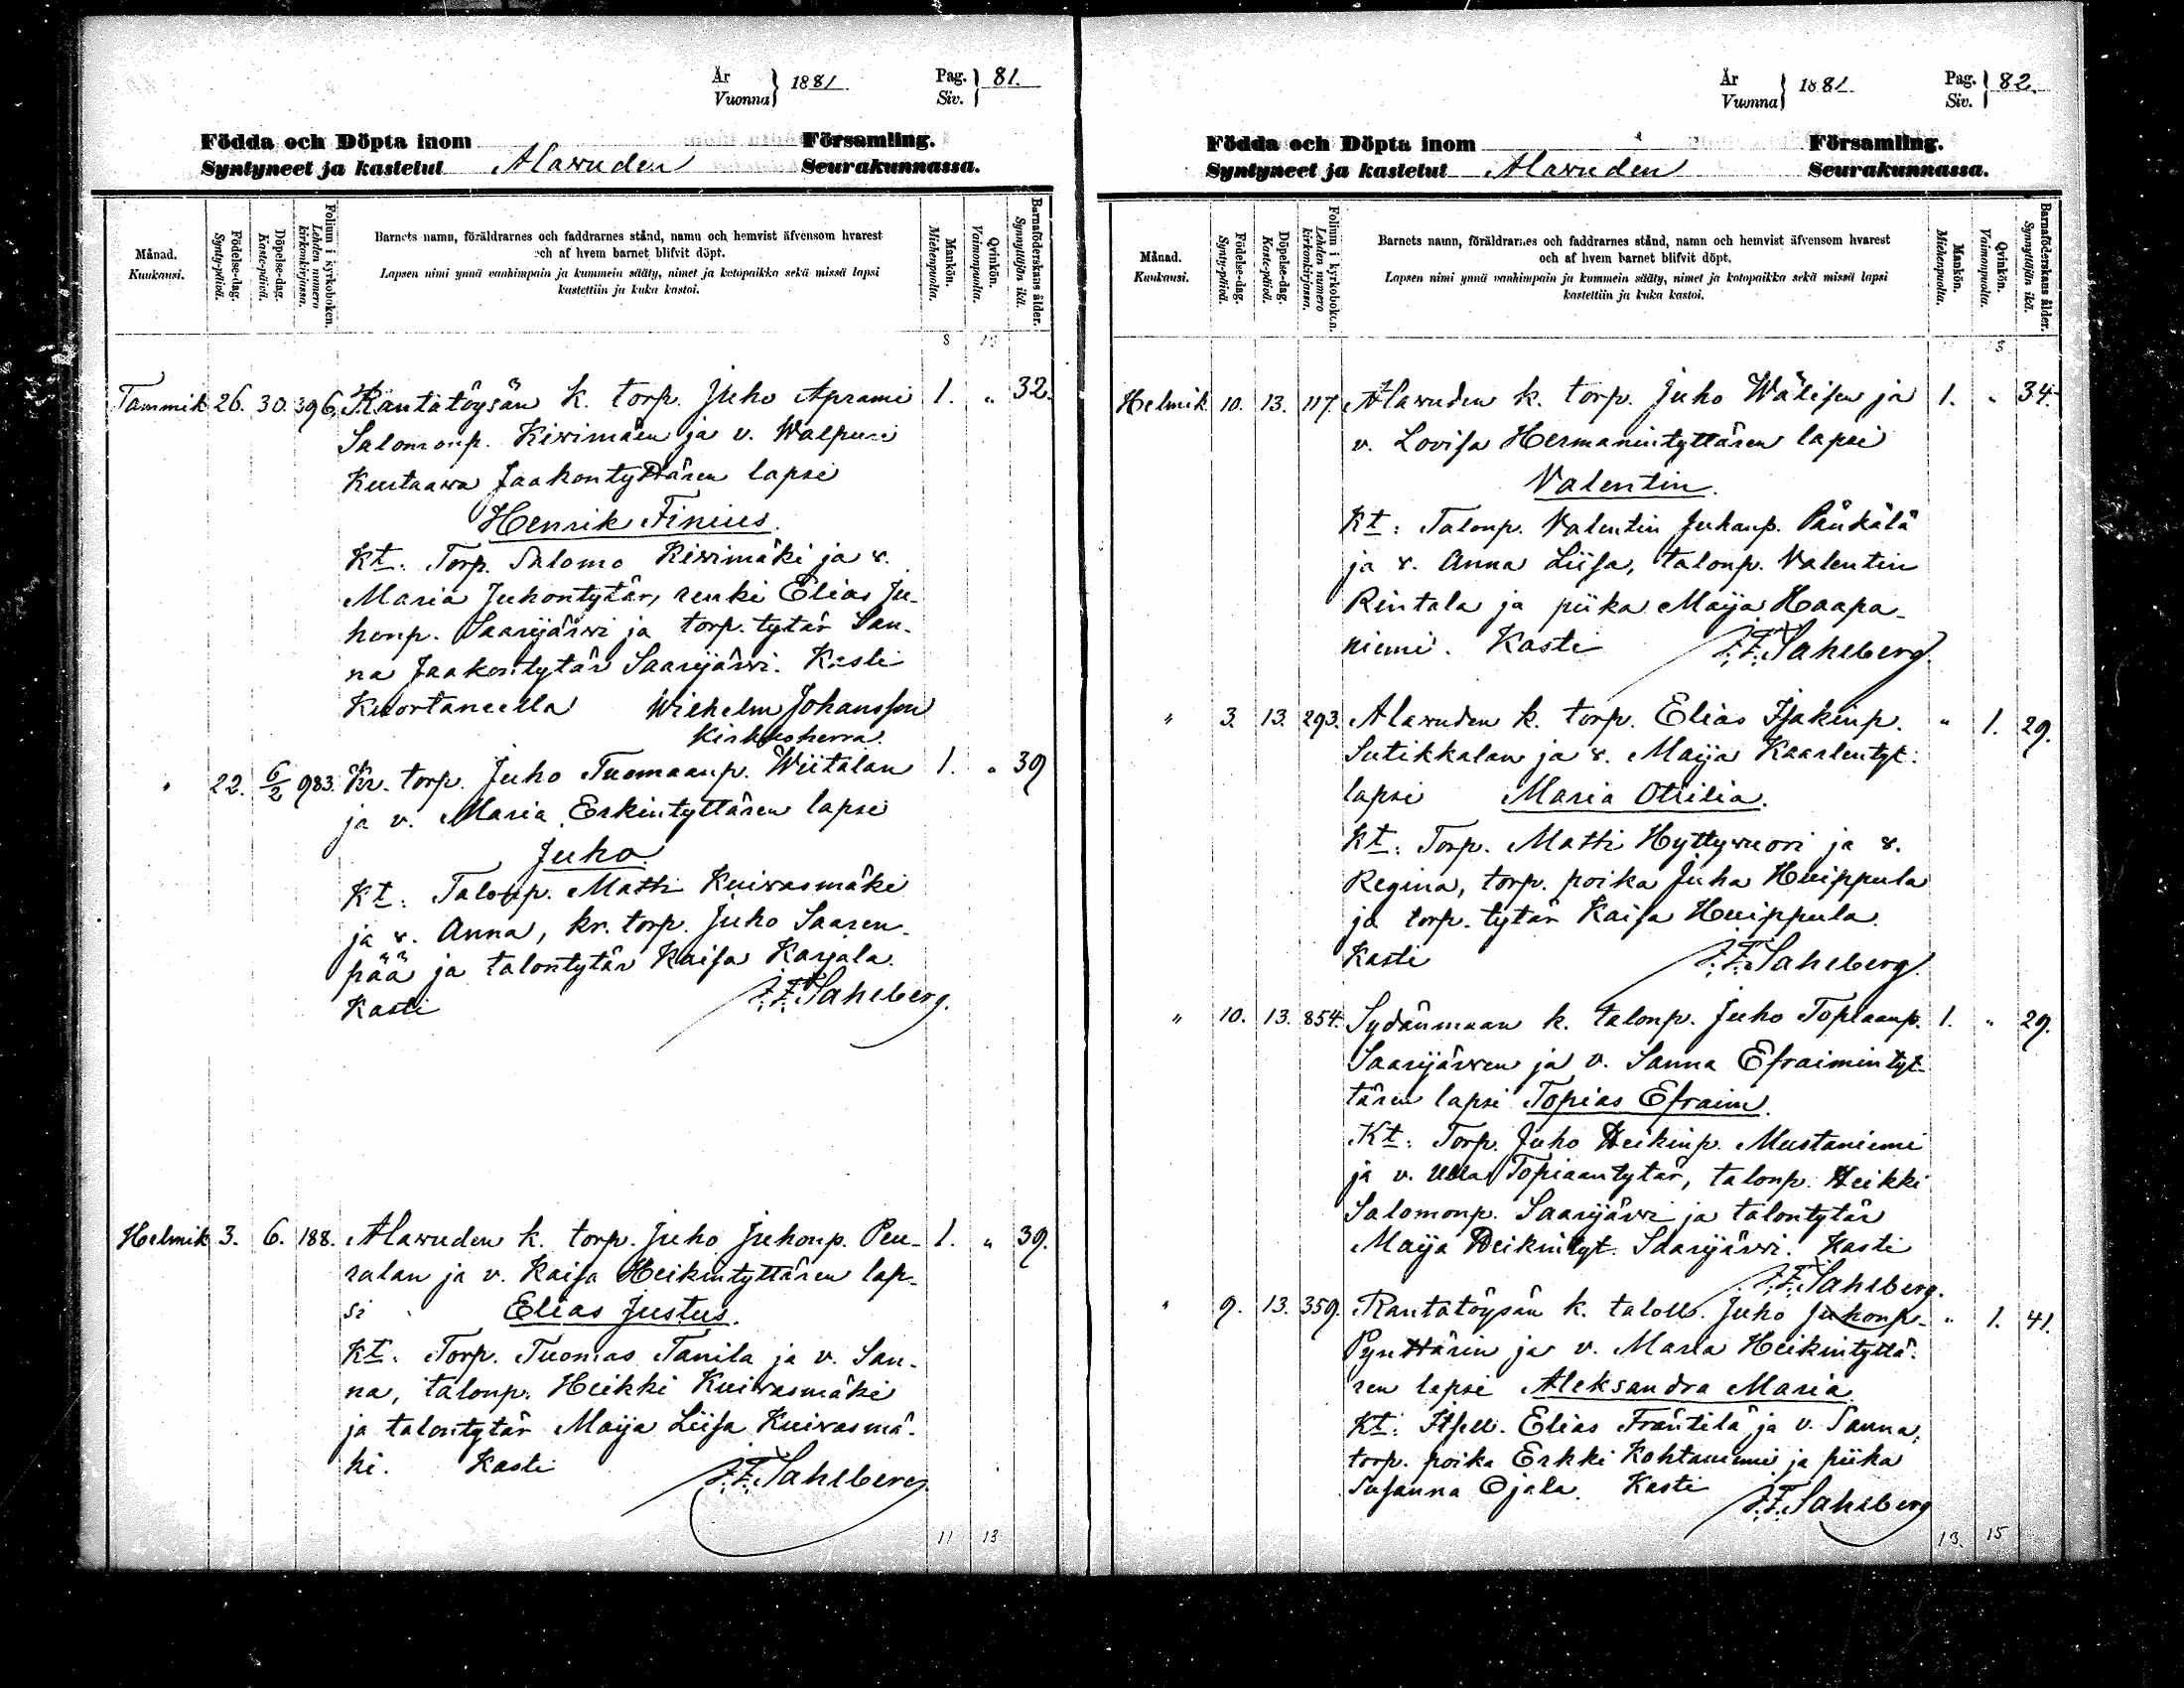 År Vuonna } 1881 Pag. Siv. } 81.
Födda och Döpta inom Församling.
Syntyneet ja kastetut Alavuden Seurakunnassa.
Månad. Kuukausi.
Födelse-dag. Synty-päivä.
Döpelse-dag. Kaste-päivä.
Folium i kyrkoboken. Lehden numero kirkonkirjassa.
Barnets namn, föräldrarnes och faddrarnes stånd, namn och hemvist äfvensom hvarest
och af hvem barnet blifvit döpt.
Lapsen nimi ynnä vanhimpain ja kummein sääty, nimet ja kotopaikka sekä missä lapsi
kastettiin ja kuka kastoi.
Mankön. Miehenpuolta.
Qvinkön. Vaimonpuolta.
Barnaföderskans ålder. Synnyttäjän ikä.
8
Tammik 26. 30. 396. Rantatöysän k. torp. Juho Aprami 1. " 32.
Salomonp. Kivimäen ja v. Walpuri
Kustaava Jaakontyttären lapsi
Henrik Finius.
Kt. Torp. Salomo Kivimäki ja v.
Maria Juhontytär, renki Elias Ju-
honp. Saarijärvi ja torp. tytär San-
na Jaakontytär Saarijärvi. Kasti
Kuortaneella Wilhelm Johansson
Kirkkoherra.
" 22. 6/2 983. Kr. torp. Juho Tuomaanp. Wiitalan 1. " 39
ja v. Maria Erkintyttären lapsi
Juho
Kt. Talonp. Matti Kuivasmäki
ja v. Anna, kr. torp. Juho Saaren-
pää ja talontytär Kaisa Karjala.
Kasti F.F. Sahlberg.
Helmik 3. 6. 188. Alavuden k. torp. Juho Juhonp. Peu- 1. " 39.
ralan ja v. Kaisa Heikintyttären lap-
si Elias Justus.
Kt. Torp. Tuomas Tanila ja v. San-
na, talonp. Heikki Kuivasmäki
ja talontytär Maija Liisa Kuivasmä-
ki. Kasti F.F. Sahlberg.
11 13
År Vuonna } 1881 Pag. Siv. } 82.
Födda och Döpta inom Församling.
Syntyneet ja kastetut Alavuden Seurakunnassa.
Månad. Kuukausi.
Födelse-dag. Synty-päivä.
Döpelse-dag. Kaste-päivä.
Folium i kyrkoboken. Lehden numero kirkonkirjassa.
Barnets namn, föräldrarnes och faddrarnes stånd, namn och hemvist äfvensom hvarest
och af hvem barnet blifvit döpt.
Lapsen nimi ynnä vanhimpain ja kummein sääty, nimet ja kotopaikka sekä missä lapsi
kastettiin ja kuka kastoi.
Mankön. Miehenpuolta.
Qvinkön. Vaimonpuolta.
Barnaföderskans ålder. Synnyttäjän ikä.
3
Helmik. 10. 13. 117. Alavuden k. torp. Juho Wälisen ja 1. " 34.
v. Lovisa Hermanintyttären lapsi
Valentin.
Kt: Talonp. Valentin Juhanp. Pänkälä
ja v. Anna Liisa, talonp. Valentin
Rintala ja piika Maija Haapa-
niemi. Kasti F.F. Sahlberg.
" 3. 13. 293. Alavuden k. torp. Elias Isakinp. " 1. 29.
Sutikkalan ja v. Maija Kaarlentyt:
lapsi Maria Otilia.
Kt: Torp. Matti Hyttyvuori ja v.
Regina, torp. poika Juha Huippula
ja torp. tytär Kaisa Huippula.
Kasti F.F. Sahlberg.
" 10. 13. 854. Sydänmaan k. talonp. Juho Topiaanp. 1. " 29.
Saarijärven ja v. Sanna Efraimintyt-
tären lapsi Topias Efraim.
Kt: Torp. Juho Heikinp. Mustaniemi
ja v. Ulla Topiaantytär, talonp. Heikki
Salomonp. Saarijärvi ja talontytär
Maija Heikintyt. Saarijärvi. Kasti
F.F. Sahlberg.
" 9. 13. 359. Rantatöysän k. taloll. Juho Juhonp. " 1. 41.
Pynttärin ja v. Maria Heikintyttä-
ren lapsi Aleksandra Maria.
Kt: Itsell. Elias Fräntilä ja v. Sanna,
torp. poika Erkki Kohtaniemi ja piika
Susanna Ojala. Kasti F.F. Sahlberg
13. 15